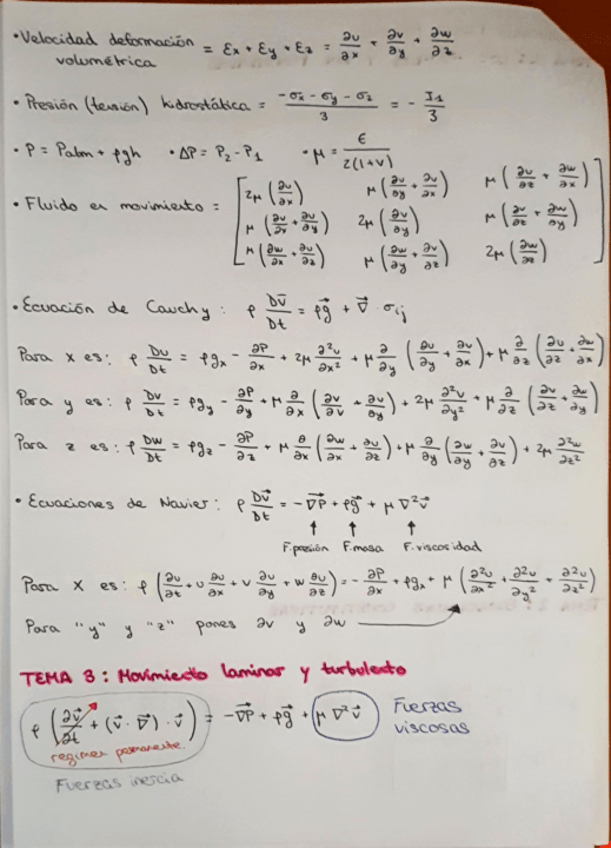 • Velocidad deformación volumétrica = εx + εy + εz = ∂u/∂x + ∂v/∂y + ∂w/∂z
• Presión (tensión) hidrostática = (-σx - σy - σz)/3 = - I1/3
• P = Patm + ρgh • ΔP = P2 - P1 • μ = E/(2(1+ν))
• Fluido en movimiento = [ 2μ(∂u/∂x) μ(∂u/∂y + ∂v/∂x) μ(∂u/∂z + ∂w/∂x)
μ(∂v/∂x + ∂u/∂y) 2μ(∂v/∂y) μ(∂v/∂z + ∂w/∂y)
μ(∂w/∂x + ∂u/∂z) μ(∂w/∂y + ∂v/∂z) 2μ(∂w/∂z) ]
• Ecuación de Cauchy: ρ Dv̄/Dt = ρg⃗ + ∇⃗ · σij
Para x es: ρ Du/Dt = ρgx - ∂P/∂x + 2μ ∂²u/∂x² + μ ∂/∂y (∂u/∂y + ∂v/∂x) + μ ∂/∂z (∂u/∂z + ∂w/∂x)
Para y es: ρ Dv/Dt = ρgy - ∂P/∂y + μ ∂/∂x (∂v/∂v + ∂u/∂y) + 2μ ∂²v/∂y² + μ ∂/∂z (∂v/∂z + ∂w/∂y)
Para z es: ρ Dw/Dt = ρgz - ∂P/∂z + μ ∂/∂x (∂w/∂x + ∂u/∂z) + μ ∂/∂y (∂w/∂y + ∂v/∂z) + 2μ ∂²w/∂z²
• Ecuaciones de Navier: ρ Dv⃗/Dt = -∇⃗P + ρg⃗ + μ ∇²v⃗
↑ ↑ ↑
F.presión F.masa F.viscosidad
Para x es: ρ (∂u/∂t + u ∂u/∂x + v ∂u/∂y + w ∂u/∂z) = - ∂P/∂x + ρgx + μ (∂²u/∂x² + ∂²u/∂y² + ∂²u/∂z²)
Para "y" y "z" pones ∂v y ∂w
TEMA 3: Movimiento laminar y turbulento
ρ (∂v⃗/∂t + (v⃗ · ∇⃗) · v⃗) = -∇⃗P + ρg⃗ + μ ∇²v⃗ Fuerzas viscosas
regimen permanente
Fuerzas inercia